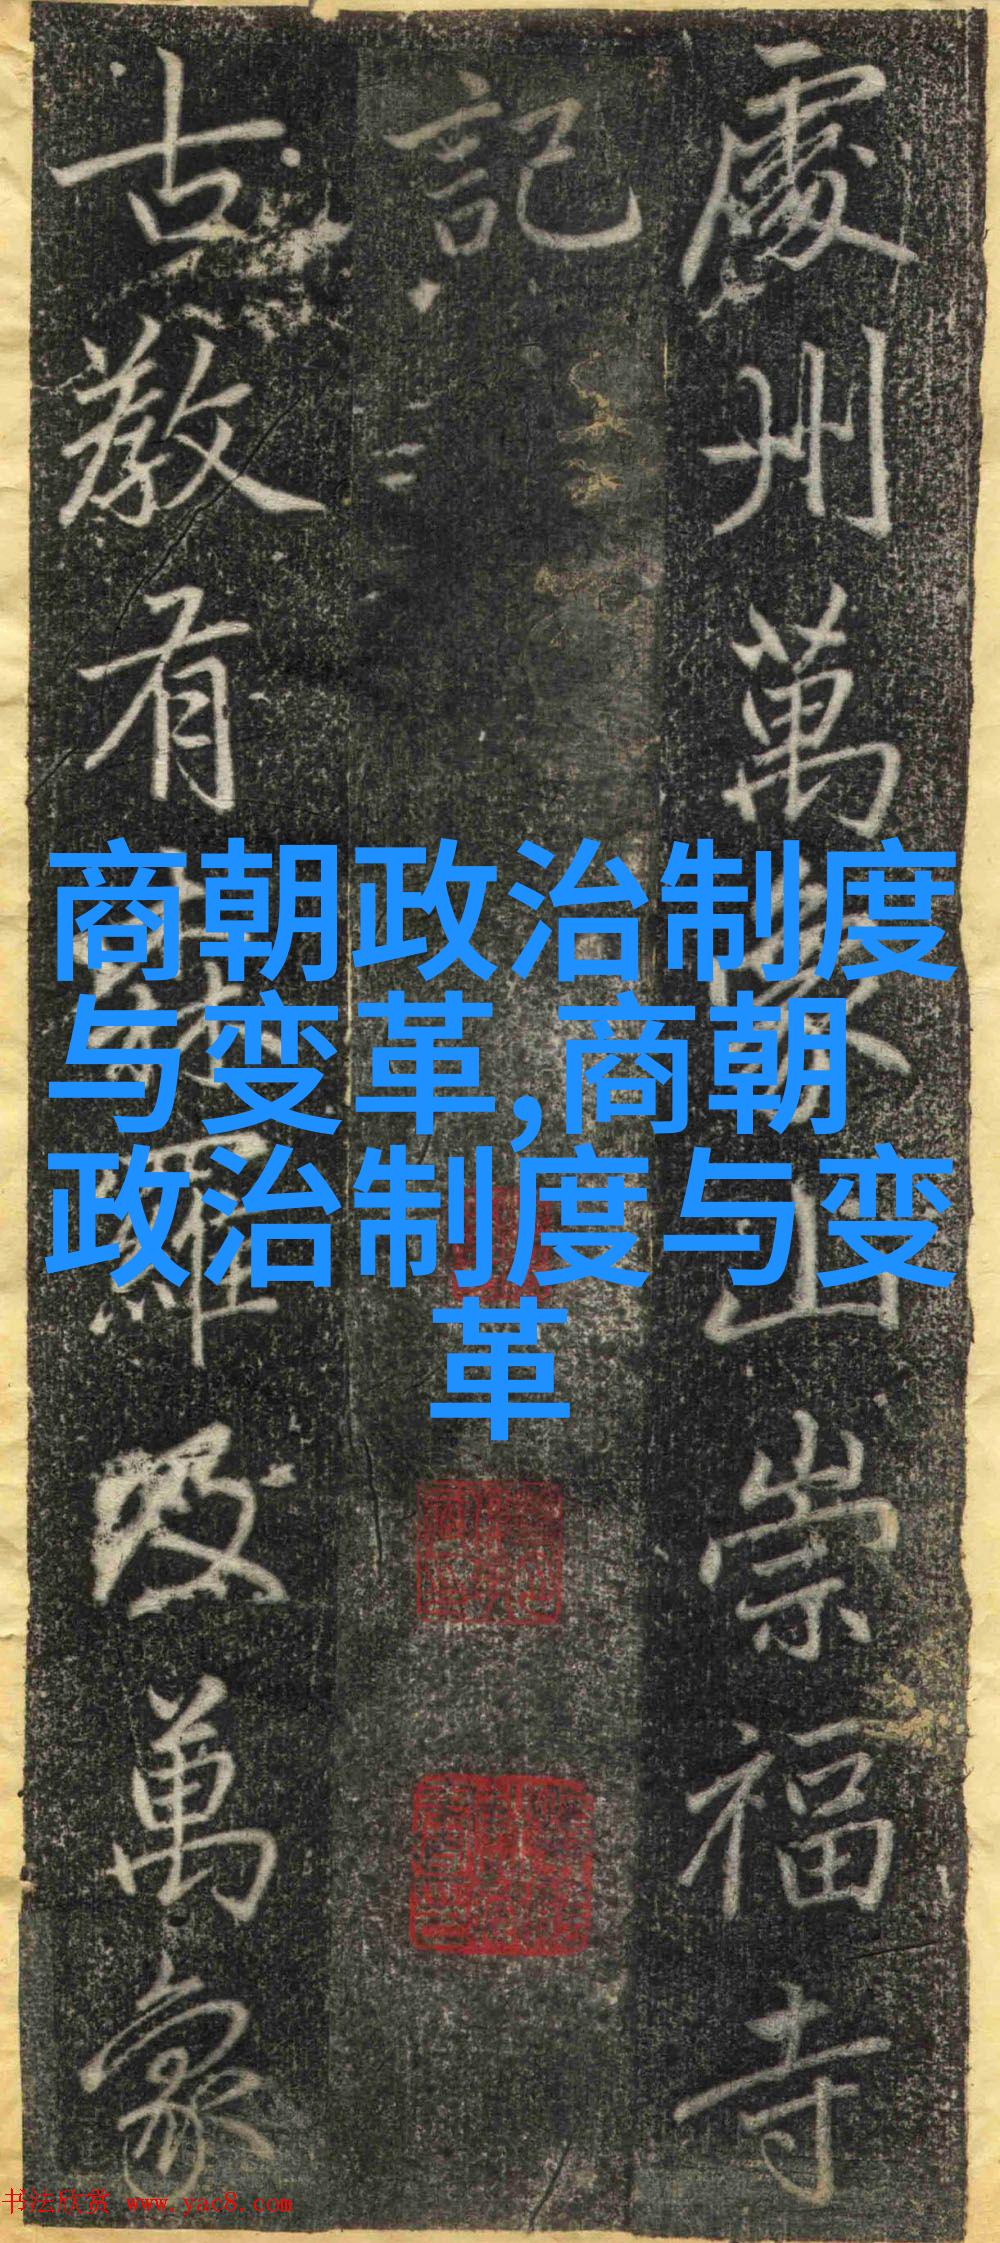 處州萬象山崇福寺
記
古教有森羅及萬象
商朝政治制度
与变革,商朝
政治制度与变
革
书法欣赏 www.yac8.com